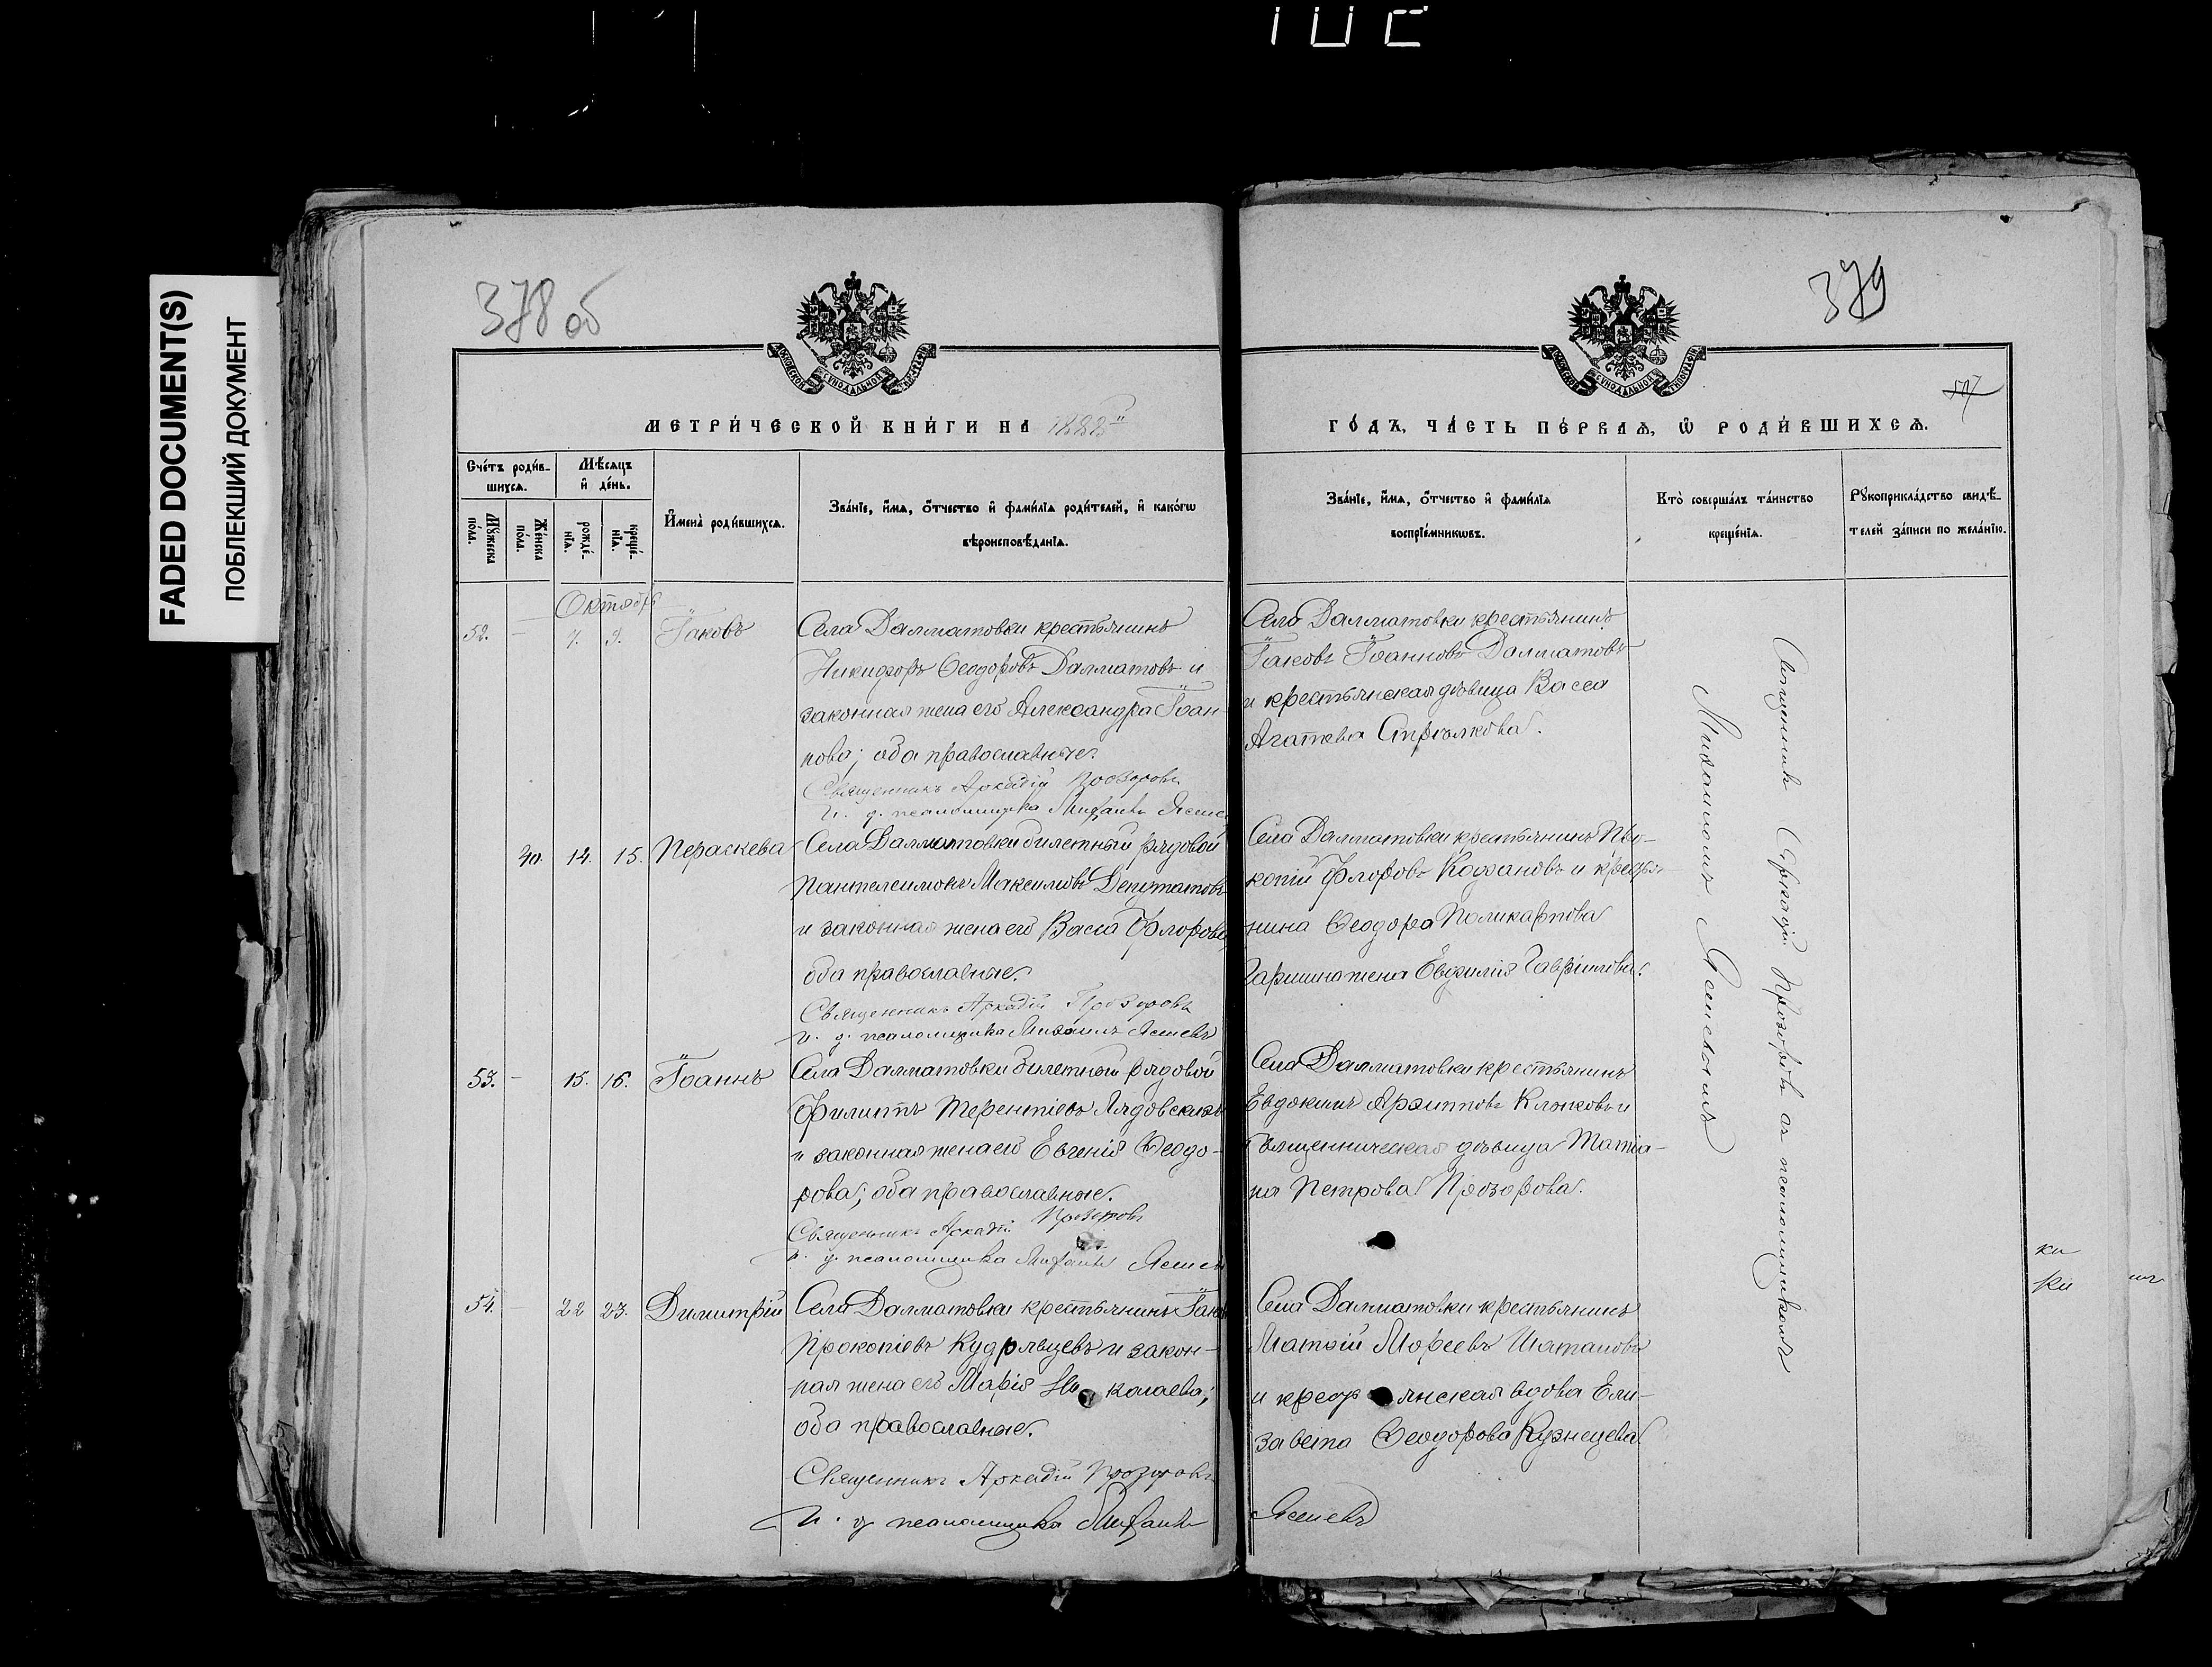 FADED DOCUMENT(S)
ПОБЛЕКШИЙ ДОКУМЕНТ
378 об
379
МОСКОВСКОЙ СУНОДАЛЬНОЙ ТИПОГРАФІИ
МОСКОВСКОЙ СУНОДАЛЬНОЙ ТИПОГРАФІИ
МЕТРИ́ЧЕСКОЙ КНИ́ГИ НА
ГО́ДЪ, ЧА́СТЬ ПЕ́РВАЯ, Ѡ РОДИ́ВШИХСЯ.
Сче́тъ роди́в-
шихся.
Мꙋ́жеска по́ла.
Же́нска по́ла.
Мѣ́сяцъ
и҆ де́нь.
рожде́-
нїя.
креще́-
нїя.
И҆мена̀ роди́вшихся.
Зва́нїе, и҆́мя, ѻ҆́тчество и҆ фами́лїя роди́телей, и҆ како́гѡ
вѣроисповѣ́данїя.
Зва́нїе, и҆́мя, ѻ҆́тчество и҆ фами́лїя
воспрїе́мникѡвъ.
Кто̀ соверша́лъ та́инство
креще́нїя.
Рꙋкоприкла́дство свидѣ́-
телей за́писи по жела́нїю.
Октябрь
52. - 7. 9. Іаковъ
Села Далматовки крестьянинъ
Никифоръ Ѳеодоровъ Далматовъ и
законная жена его Александра Іоан-
нова; оба православные.
Священникъ Аркадій Прозоровъ
И. д. псаломщика Михаилъ Ясенев
Села Далматовки крестьянинъ
Іаковъ Іоанновъ Далматовъ
и крестьянская дѣвица Васса
Агатиева Стрѣлкова.
40. 14. 15. Пераскева
Села Далматовки билетный рядовой
Пантелеимонъ Максимовъ Депутатовъ
и законная жена его Васса Флорова
оба православные.
Священникъ Аркадій Прозоровъ
И. д. псаломщика Михаилъ Ясеневъ
Села Далматовки крестьянинъ Про-
копій Флоровъ Кодзановъ и кресть-
нина Ѳеодора Поликарпова
Гаршина жена Евфимія Гавріилова.
53. - 15. 16. Іоаннъ
Села Далматовки билетный рядовой
Филиппъ Терентіевъ Лядовскихъ
и законная жена его Евгенія Ѳеодо-
рова; оба православные.
Священникъ Аркадій Прозоровъ
И. д. псаломщика Михаилъ Ясенев
Села Далматовки крестьянинъ
Евдокимъ Архиповъ Клоковъ и
священническая дѣвица Татіа-
на Петрова Прозорова.
54. - 22 23. Димитрій
Села Далматовки крестьянинъ Іаков
Прокопіевъ Кудрявцевъ и закон-
ная жена его Марія Николаева;
оба православные.
Священникъ Аркадій Прозоровъ
И. д. псаломщика Михаилъ Ясеневъ
Села Далматовки крестьянинъ
Матѳій Мореевъ Шаталовъ
и крестьянская вдова Ели-
завета Ѳеодорова Кузнецова.
Священникъ Аркадій Прозоровъ съ псаломщикомъ
Михаиломъ Ясеневымъ
ки
ки